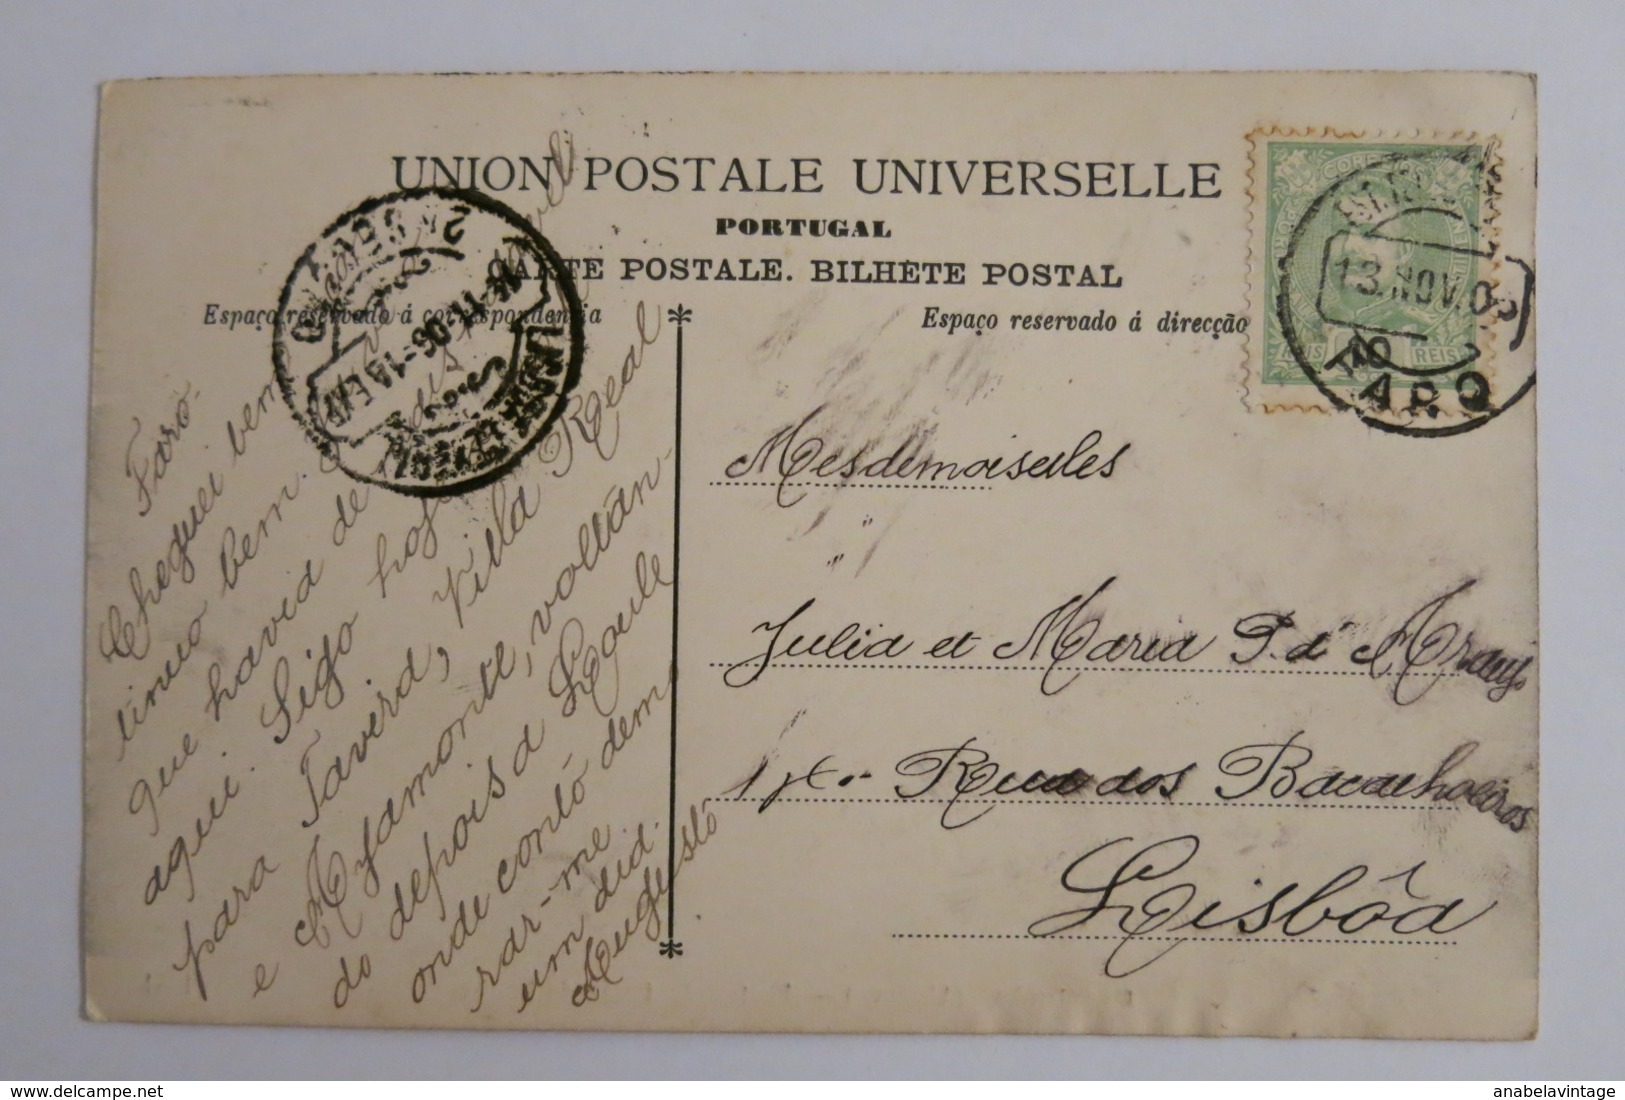 UNION POSTALE UNIVERSELLE
PORTUGAL
CARTE POSTALE. BILHETE POSTAL
Espaço reservado á correspondencia
Espaço reservado á direcção
CORREIOS
PORTUGAL
REIS 10 REIS
13. NOV. 03
FARO
2ª SECÇÃO
06-1
LISBOA CENTRAL
Faro.
Cheguei bem
tinuo bem
que havia de
aqui. Sigo hoje
para Tavira, Villa Real
e Ayamonte, voltan-
do depois a Loule
onde conto demo
rar-me
um dia.
Augusto
Mesdemoiselles
" "
Julia et Maria P. d' Araujo
1 Rua dos Bacalhoeiros
Lisbôa
anabelavintage